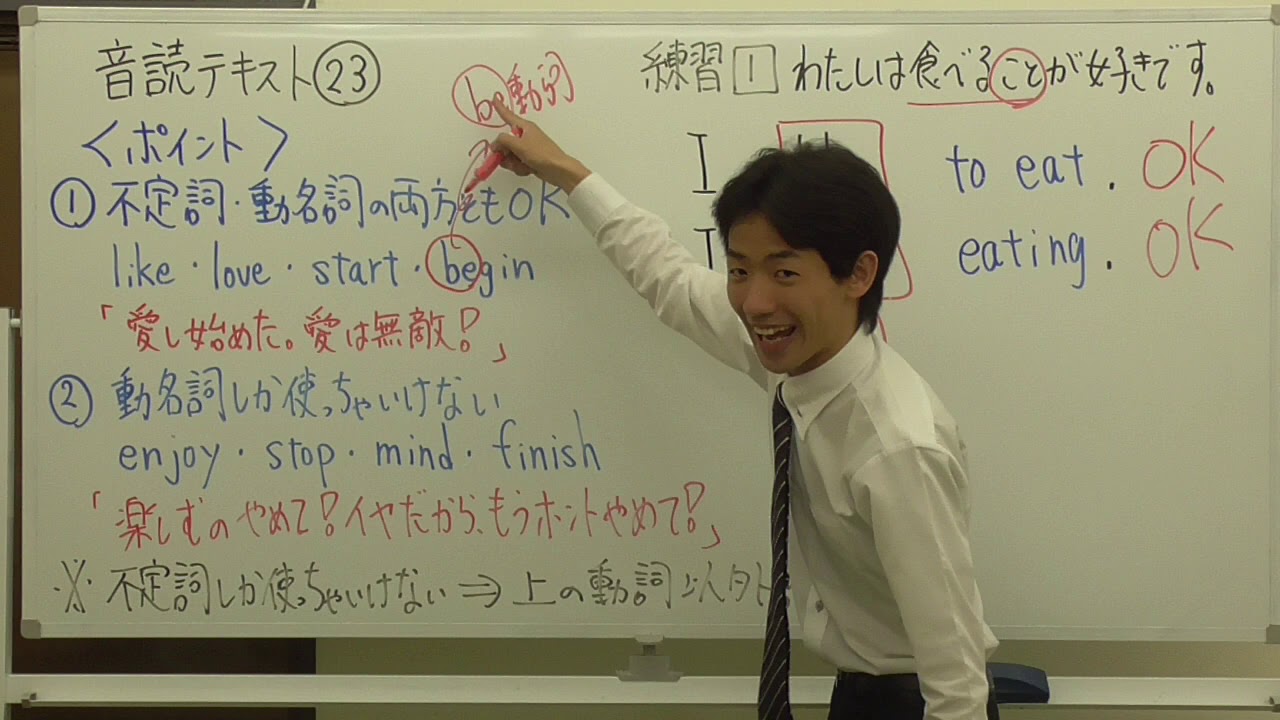 音読テキスト㉓
be動詞
<ポイント>
① 不定詞・動名詞の両方ともOK
like・love・start・begin
「愛し始めた。愛は無敵!」
② 動名詞しか使っちゃいけない
enjoy・stop・mind・finish
「楽しむのやめて!イヤだから、もうホントやめて!」
※不定詞しか使っちゃいけない⇒上の動詞以外
練習1 わたしは食べることが好きです。
I to eat. OK
I eating. OK